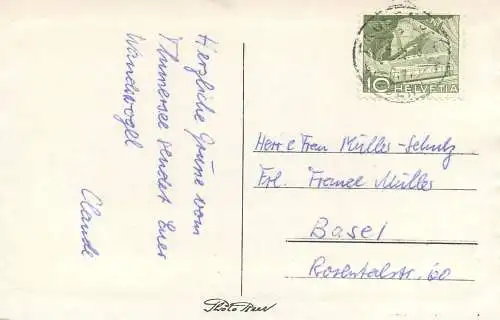 Herzliche Grüsse vom
Thunersee sendet Euer
Wandervogel
Claude
10
HELVETIA
Herr & Frau Müller-Schulz
Frl. France Müller
Basel
Rosentalstr. 60
Photo